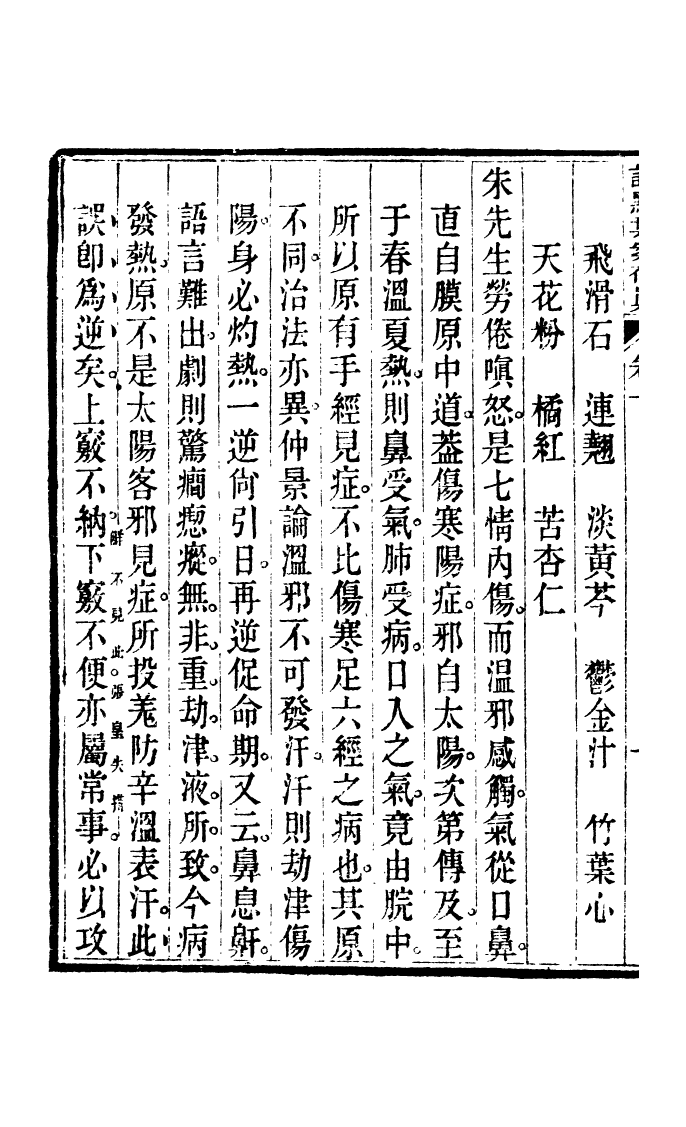 飛滑石　連翹　淡黃芩　鬱金汁　竹葉心
天花粉　橘紅　苦杏仁
朱先生勞倦嗔怒。是七情內傷。而溫邪感觸。氣從口鼻。
直自膜原中道。葢傷寒陽症。邪自太陽。次第傳及。至
于春溫夏熱。則鼻受氣。肺受病。口入之氣。竟由脘中。
所以原有手經見症。不比傷寒足六經之病也。其原
不同。治法亦異。仲景論溫邪不可發汗。汗則劫津傷
陽。身必灼熱。一逆尙引日。再逆促命期。又云。鼻息鼾。
語言難出。劇則驚癎瘛瘲。無非重劫津液。所致。今病
發熱。原不是太陽客邪見症。所投羗防辛溫表汗。此
誤卽爲逆矣。上竅不納。下竅不便。亦屬常事。必以攻
醉不見此。張皇失措。